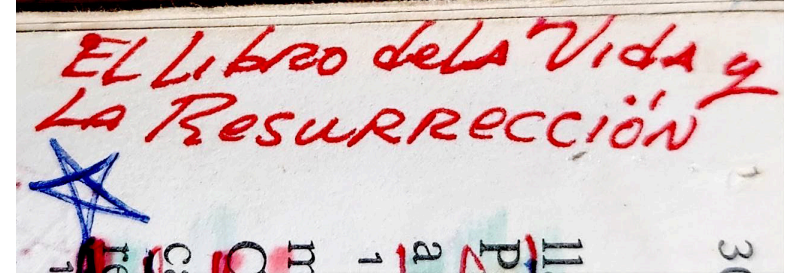 EL Libro dela Vida y
LA RESURRECCIÓN